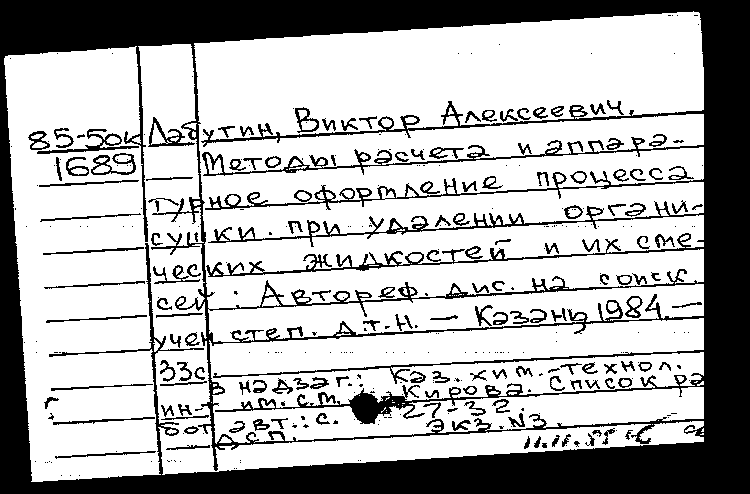 85-5ок Лабутин, Виктор Алексеевич.
1689 Методы расчета и аппара-
турное оформление процесса
сушки при удалении органи-
ческих жидкостей и их сме-
сей : Автореф. дис. на соиск.
учен степ. д.т.н. — Казань, 1984. —
33с.
В надзаг.: Каз. хим.-технол.
ин-т им. С.М. Кирова. Список ра
бот авт.: с. 27-32.
Д.С.П. Экз. №3.